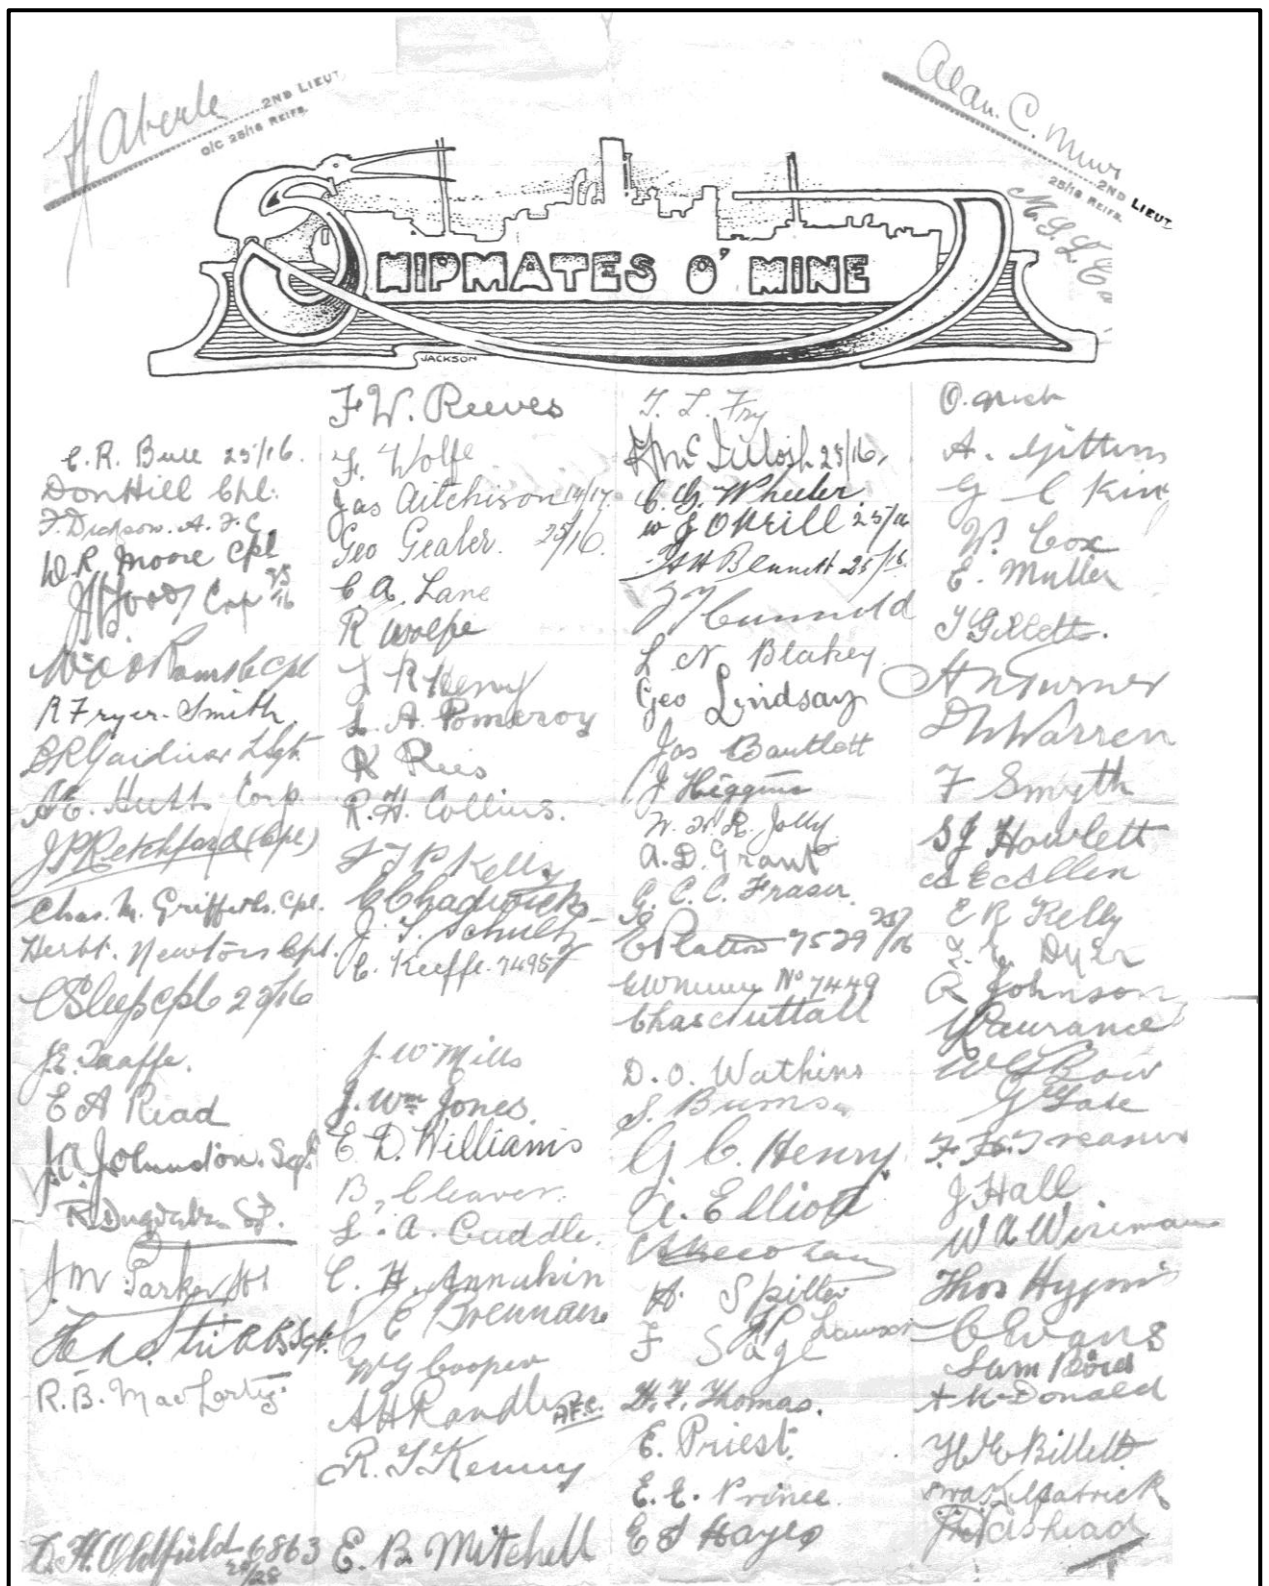 H Aberle
2ND LIEUT
O/C 25/16 REIFS.
Alan. C. Muir
2ND LIEUT.
25/16 REIFS.
SHIPMATES O' MINE
JACKSON
C. R. Bull 25/16.
Don Hill Cpl.
F. Dickson. A. F. C
W. R. Moore Cpl
Cpl 25/16
R Fryer-Smith
B R Gardiner L/Sgt
A E. Hutt Corp.
J P Retchford (Cpl)
Chas. M. Griffiths. Cpl.
Herbt. Newton Cpl.
C Sleep Cpl 25/16
J. E. Taaffe.
E A Read
J. A. Johnston. Sgt.
R. Dugdale Sgt.
J. M Parker Sgt
Stubbs Sgt.
R. B. MacLarty
L. H. Oldfield 6863
25/28
F. W. Reeves
F. Wolfe
Jas Aitchison 14/17.
Geo Gealer. 25/16.
C A. Lane
R Wolfe
J R Henry
L. A. Pomeroy
R Rees
R. H. Collins.
F J P Kelly
C Chadwick
J. T. Schultz
C. Keeffe. 7495
J. W. Mills
J. Wm Jones.
E. D. Williams
B. Cleaver.
L. A. Cuddle.
C. H. Annakin
C E Brennan
W G Cooper
A H Randle A.F.C.
R. T Kenny
E. B. Mitchell
T. L. Fry
25/16.
C. G. Wheeler.
W J O'Neill 25/16
A H Bennett 25/16.
L N Blakey.
Geo Lindsay
Jas Bartlett
J Higgins
W. H. R. Jolly
A. D. Grant
G. C. C. Fraser.
E Platten 7529 25/16
No 7449
Chas Nuttall
D. O. Watkins
S. Burns
G C. Henry.
A. Elliott
A. Spiller
J P Lawson
F Sage
H. F. Thomas.
E. Priest.
E. E. Prince.
E S Hayes
A. Gittins
G C King
W. Cox
E. Muller
T Gillett.
A N Turner
D W Warren
F Smyth
S J Howlett
A E Allen
E R Kelly
F. E. Dyer
R Johnson
W Laurance
W G Row
G Gale
F. F. Treasure
J Hall
W A Wireman
Thos Hyams
C Evans
Sam Boird
A McDonald
H E Billett
Kilpatrick